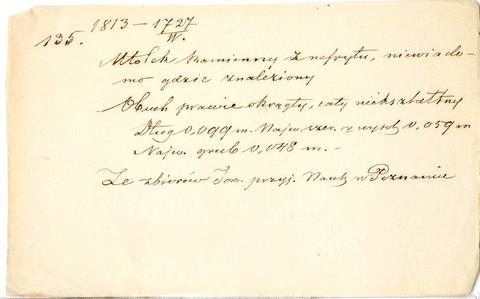 135. 1813 – 1727/W.
Młotek kamienny z nefrytu, niewiado-
mo gdzie znaleziony
Obuch prawie okrągły, cały niekształtny
Dług 0,099 m. Najw. szer. z wysok 0,059 m
Najw. grub 0,048 m. –
Ze zbiorów Tow. przyj. Nauk w Poznaniu